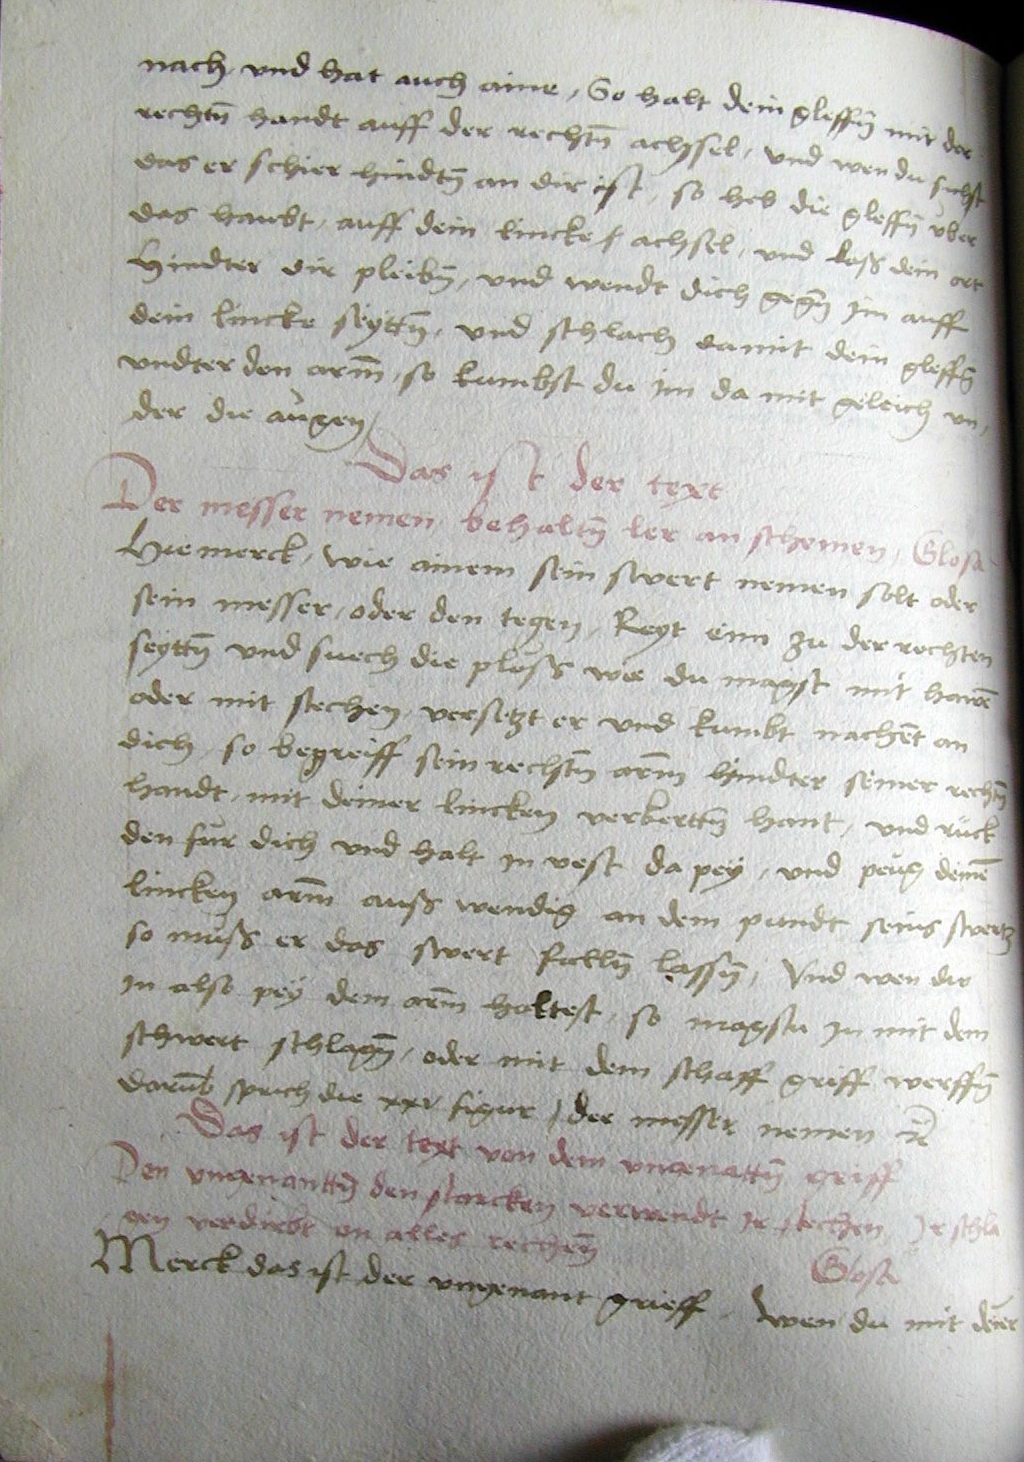 nach, vnd hat auch aine, So halt dein gleffn̄ mit der
rechtn̄ handt auff der rechtn̄ achsel, vnd wen du sichst
das er schier hindtn̄ an dir ist, so heb die gleffn̄ über
das haubt, auff dein lincke achsel, vnd lass dein ort
hindter dir pleibn̄, vnd wendt dich gegn̄ im auff
dein lincke seyttn̄, vnd schlach damit dein gleffn̄
vndter den arm̄, so kumbst du im da mit geleich vn,
der die augen,
Das ist der text
Der messer nemen, behaltn̄ ler an schemen, Glosa
Hie merck, wie ainem sein swert nemen solt oder
sein messer, oder den tegen, Reyt eim zu der rechten
seyttn̄ vnd suech die plöss wie du magst mit hawē
oder mit stechen, versetzt er vnd kumbt nachēt an
dich, so begreiff sein rechtn̄ arm̄ hindter seiner rechtn̄
handt, mit deiner lincken verkerttn̄ hant, vnd rück
den für dich vnd halt in vest da pey, vnd peug deinē
lincken arm̄ auss wendig an dem pundt seins swertz
so muss er das swert falln̄ lassn̄, Vnd wen du
in also pey dem arm̄ haltest, so magstu in mit dem
schwert schlagn̄, oder mit dem schaff griff werffn̄
darūb sprich die xxv figur, der messer nemen &c
Das ist der text von dem vngenattn̄ griff
Den vngenanttn̄ den starcken verwendt Ir stechen, Ir schla
gen verdirbt on alles rechen̄ Glosa
Merck das ist der vngenant grieff, Wen du mit deīer